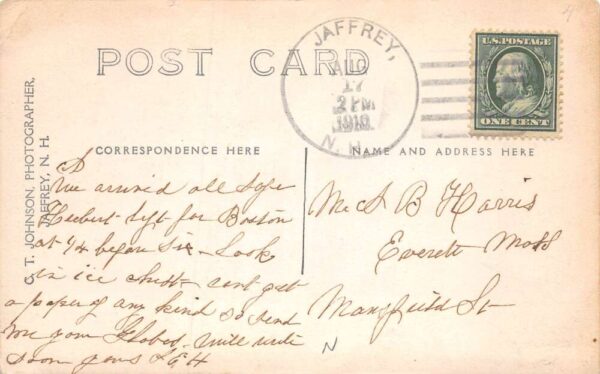 POST CARD
JAFFREY,
AUG
17
2 PM
1910
N. H.
U.S. POSTAGE
ONE CENT
C. T. JOHNSON, PHOTOGRAPHER,
JAFFREY, N. H.
CORRESPONDENCE HERE
NAME AND ADDRESS HERE
We arrived all safe
Heebert left for Boston
at 1/4 before Six - Look
in ice chest cant get
a paper of any kind so send
me your Globes. will write
soon yours L G H
B Harris
Everett Mass
Mansfield St
N